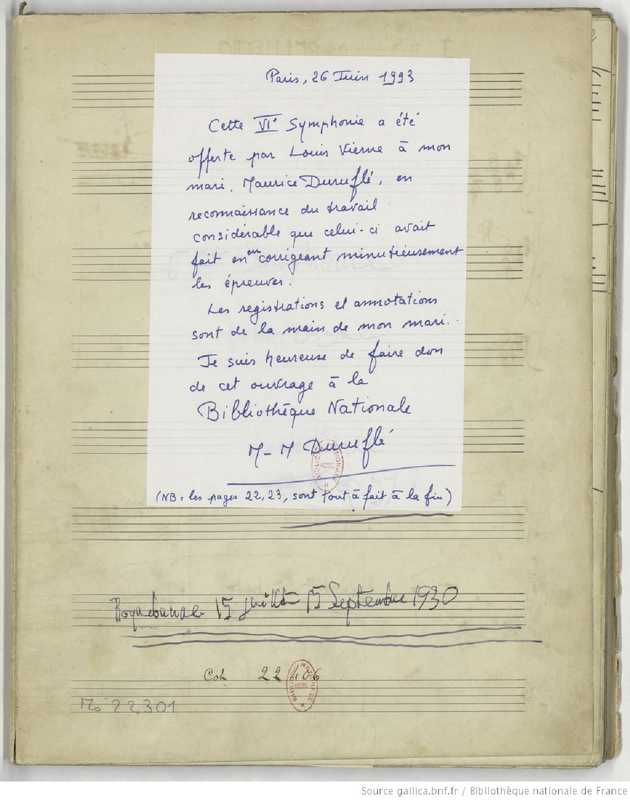 Paris, 26 Juin 1993
Cette VIe Symphonie a été
offerte par Louis Vierne à mon
mari, Maurice Duruflé, en
reconnaissance du travail
considérable que celui-ci avait
fait en en corrigeant minutieusement
les épreuves.
Les registrations et annotations
sont de la main de mon mari.
Je suis heureuse de faire don
de cet ouvrage à la
Bibliothèque Nationale
M-M Duruflé
(NB: les pages 22, 23, sont tout à fait à la fin)
Roquebrune 15 juillet 15 Septembre 1930
22406
Ms 22301
Source gallica.bnf.fr / Bibliothèque nationale de France